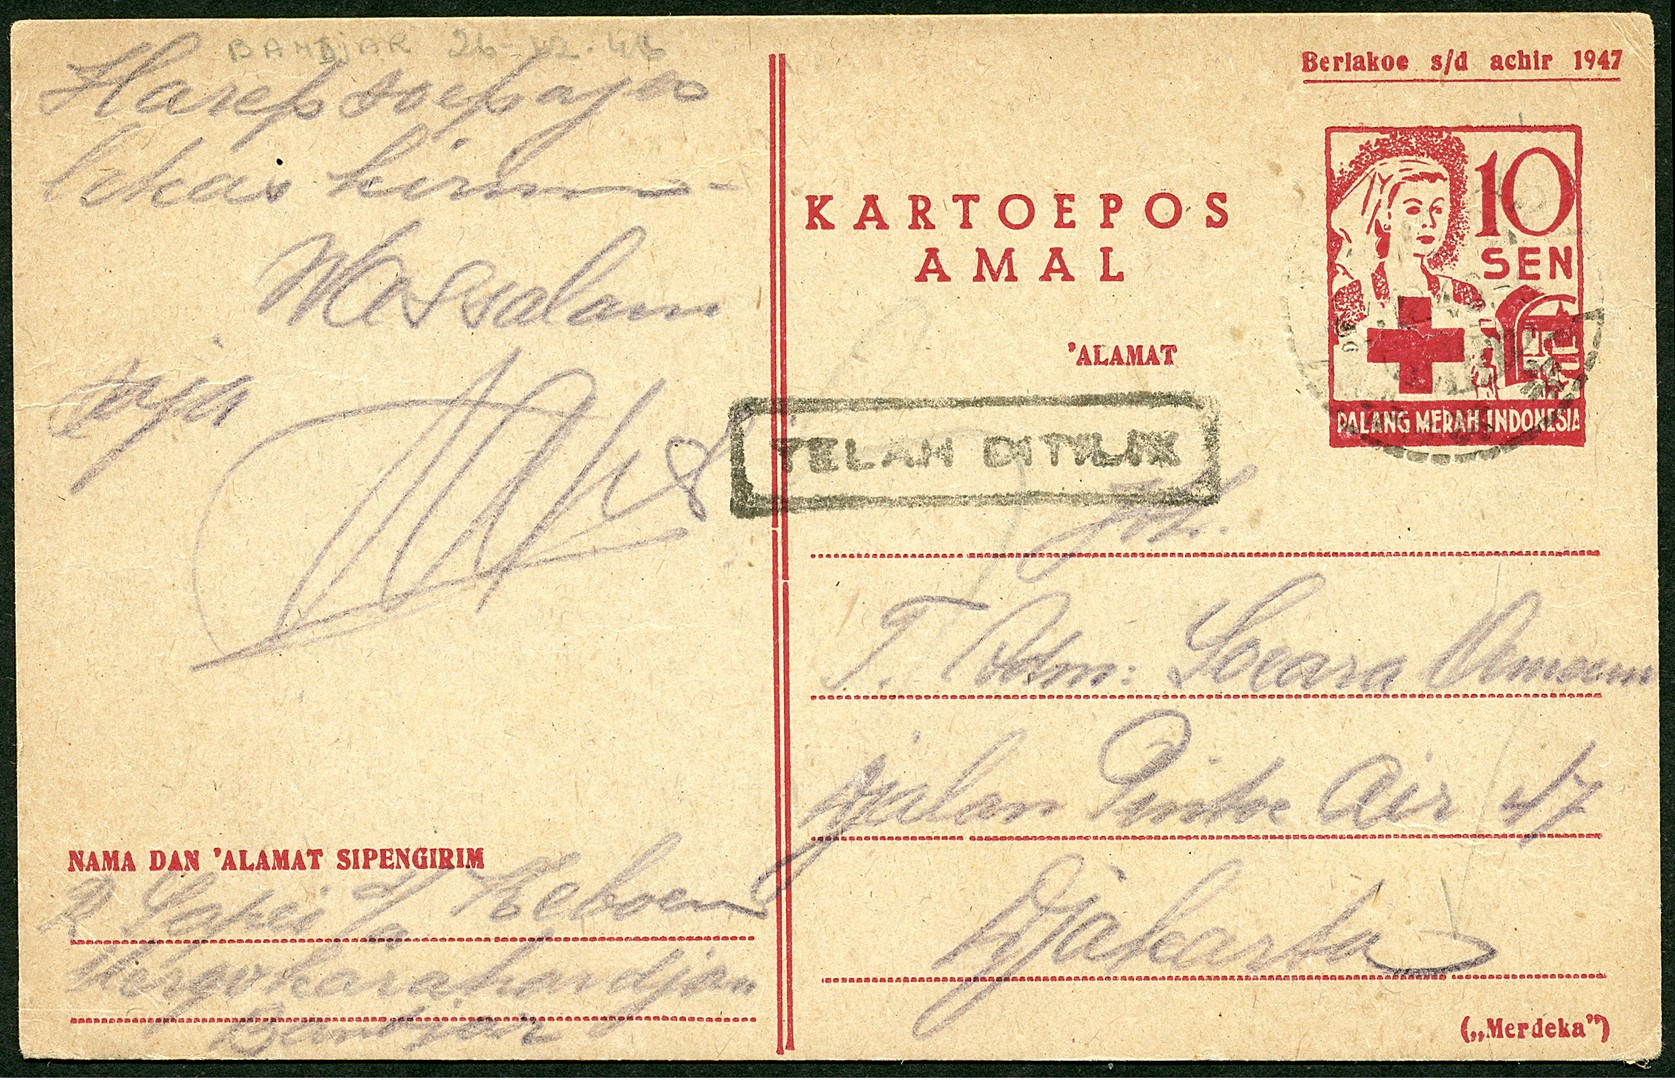 BANDJAR 26-12-46
Harep soepaja
lekas kirim
Wassalam
NAMA DAN 'ALAMAT SIPENGIRIM
Keboen
Mergoharahardjan
Bandjar
Berlakoe s/d achir 1947
10
SEN
PALANG MERAH INDONESIA
KARTOEPOS
AMAL
'ALAMAT
TELAH DITILIK
Jth.
T. Adm: Soeara Oemoem
Djalan Pintoe Air 47
Djakarta
(„Merdeka”)